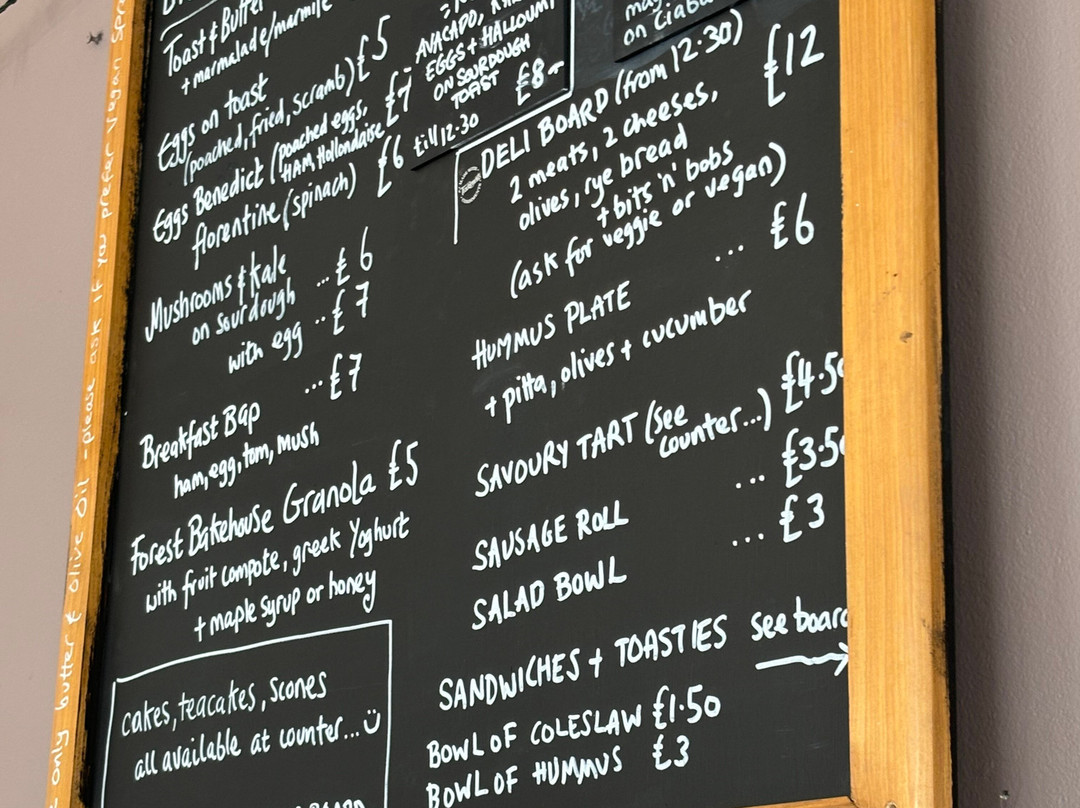 Toast & Butter
+ marmalade/marmite
Eggs on toast £5
(poached, fried, scramb)
Eggs Benedict (poached eggs, £7
HAM, Hollondaise
florentine (spinach) £6
Mushrooms & kale
on sourdough ... £6
with egg ... £7
... £7
Breakfast Bap
ham, egg, tom, mush
Forest Bakehouse Granola £5
with fruit compote, greek Yoghurt
+ maple syrup or honey
cakes, teacakes, scones
all available at counter...
AVACADO,
EGGS + HALLOUMI
ON SOURDOUGH
TOAST £8-
till 12.30
on Ciaba
DELI BOARD (from 12:30) £12
2 meats, 2 cheeses,
olives, rye bread
+ bits 'n' bobs
(ask for veggie or vegan)
... £6
HUMMUS PLATE
+ pitta, olives + cucumber
SAVOURY TART (see £4.50
counter...)
... £3.50
SAUSAGE ROLL
... £3
SALAD BOWL
SANDWICHES + TOASTIES see board
BOWL OF COLESLAW £1.50
BOWL OF HUMMUS £3
only butter & Olive Oil - please ask if you prefer Vegan Spr